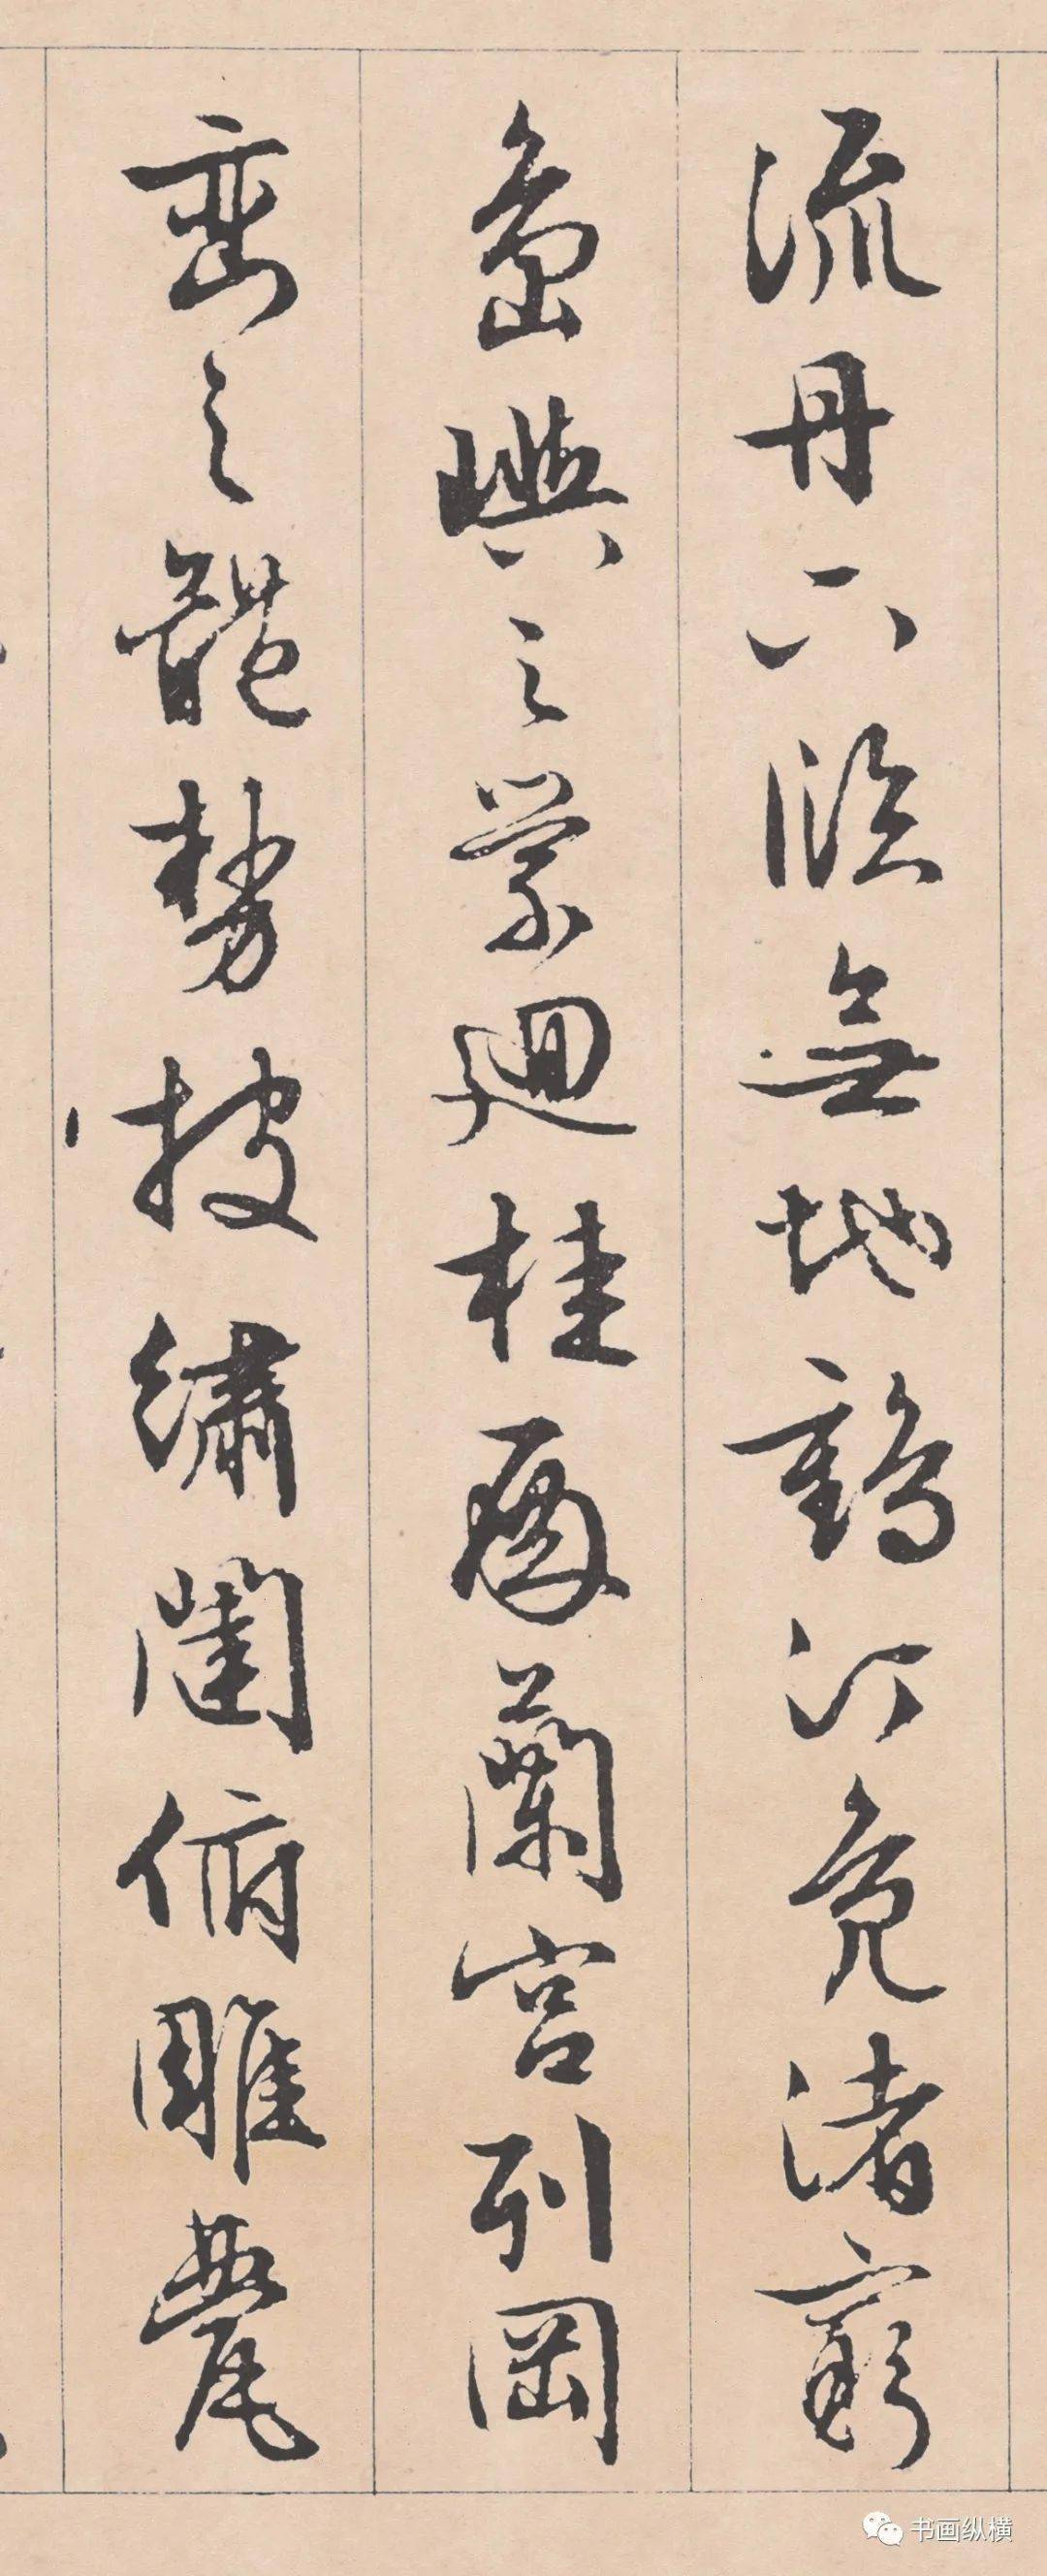 流丹下臨無地鶴汀鳧渚窮
島嶼之縈迴桂殿蘭宮列岡
巒之體勢披繡闥俯雕甍
书画纵横